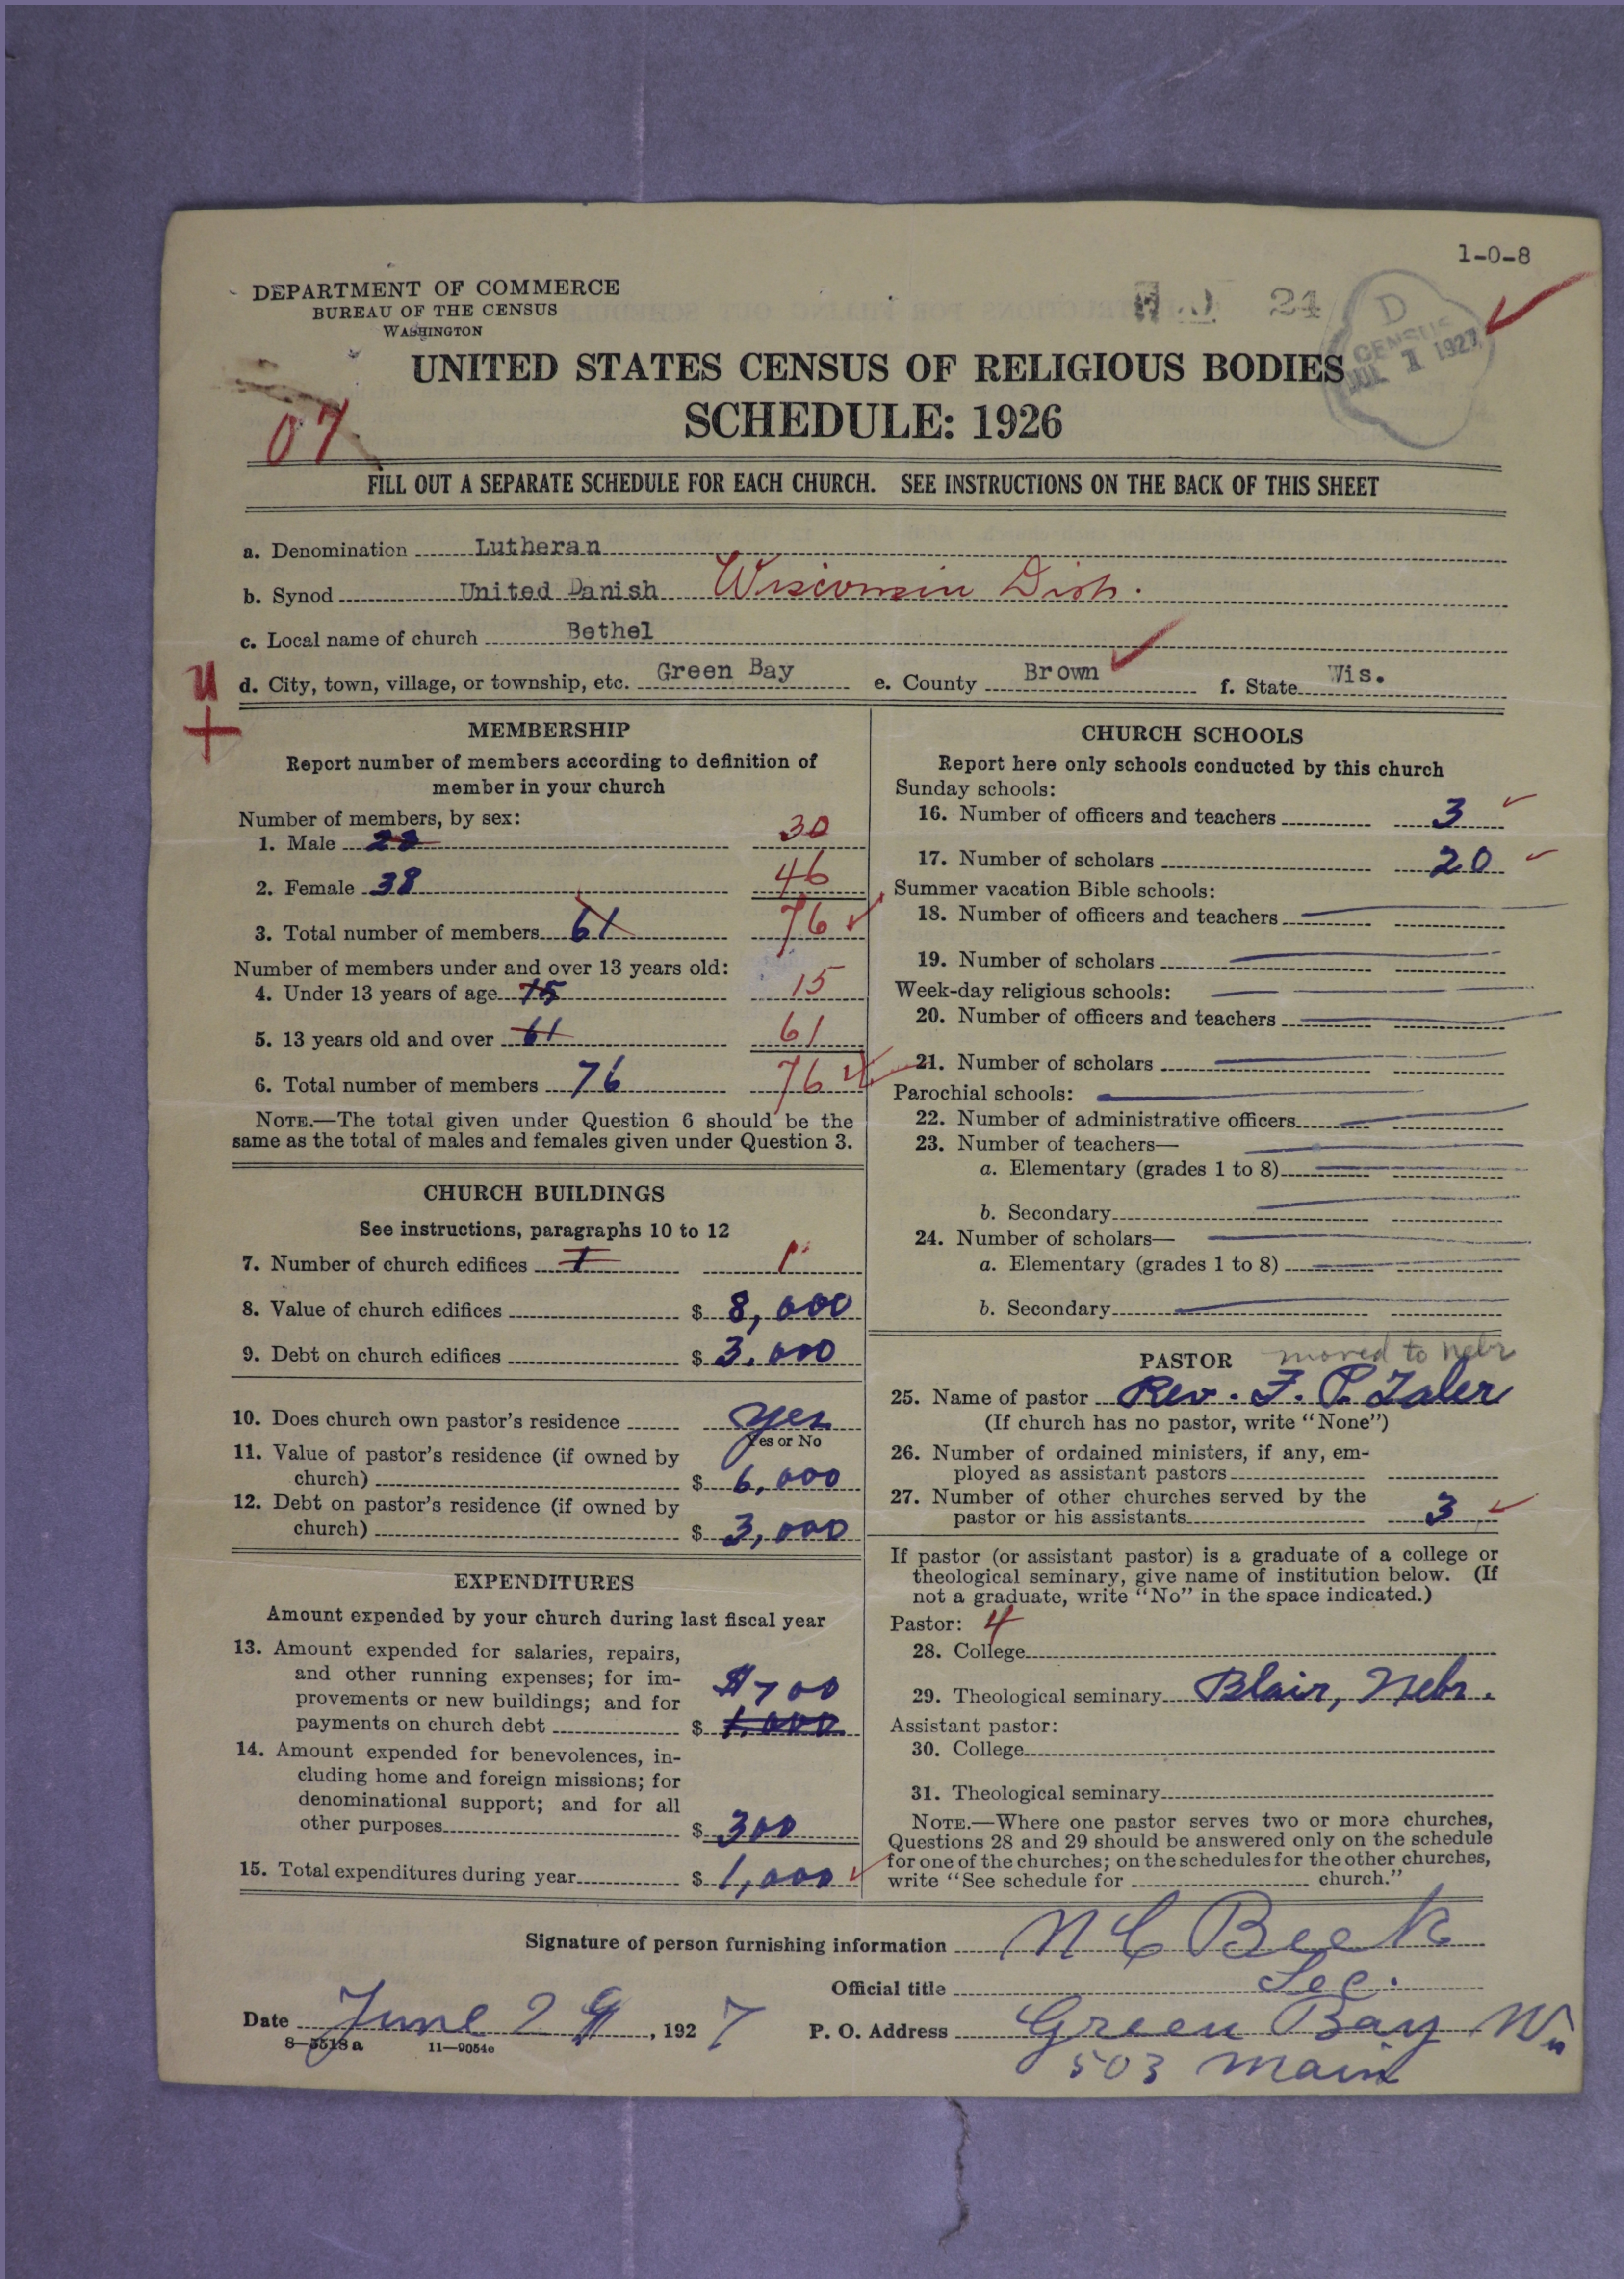 1-0-8
DEPARTMENT OF COMMERCE
BUREAU OF THE CENSUS
WASHINGTON
24
D
CENSUS
JUL 1 1927
UNITED STATES CENSUS OF RELIGIOUS BODIES
SCHEDULE: 1926
07
FILL OUT A SEPARATE SCHEDULE FOR EACH CHURCH. SEE INSTRUCTIONS ON THE BACK OF THIS SHEET
a. Denomination Lutheran
b. Synod United Danish Wisconsin Dist.
c. Local name of church Bethel
d. City, town, village, or township, etc. Green Bay e. County Brown f. State Wis.
U
+
MEMBERSHIP
Report number of members according to definition of
member in your church
Number of members, by sex:
1. Male 30
2. Female 38 46
3. Total number of members 61 76
Number of members under and over 13 years old:
4. Under 13 years of age 15 15
5. 13 years old and over 61 61
6. Total number of members 76 76
NOTE.—The total given under Question 6 should be the
same as the total of males and females given under Question 3.
CHURCH BUILDINGS
See instructions, paragraphs 10 to 12
7. Number of church edifices 1 1
8. Value of church edifices $ 8,000
9. Debt on church edifices $ 3,000
10. Does church own pastor's residence yes
Yes or No
11. Value of pastor's residence (if owned by
church) $ 6,000
12. Debt on pastor's residence (if owned by
church) $ 3,000
EXPENDITURES
Amount expended by your church during last fiscal year
13. Amount expended for salaries, repairs,
and other running expenses; for im-
provements or new buildings; and for $700
payments on church debt $ 1,000
14. Amount expended for benevolences, in-
cluding home and foreign missions; for
denominational support; and for all
other purposes $ 300
15. Total expenditures during year $ 1,000
CHURCH SCHOOLS
Report here only schools conducted by this church
Sunday schools:
16. Number of officers and teachers 3
17. Number of scholars 20
Summer vacation Bible schools:
18. Number of officers and teachers
19. Number of scholars
Week-day religious schools:
20. Number of officers and teachers
21. Number of scholars
Parochial schools:
22. Number of administrative officers
23. Number of teachers—
a. Elementary (grades 1 to 8)
b. Secondary
24. Number of scholars—
a. Elementary (grades 1 to 8)
b. Secondary
PASTOR moved to Nebr
25. Name of pastor Rev. F. P.
(If church has no pastor, write "None")
26. Number of ordained ministers, if any, em-
ployed as assistant pastors
27. Number of other churches served by the
pastor or his assistants 3
If pastor (or assistant pastor) is a graduate of a college or
theological seminary, give name of institution below. (If
not a graduate, write "No" in the space indicated.)
Pastor: 4
28. College
29. Theological seminary Blair, Nebr.
Assistant pastor:
30. College
31. Theological seminary
NOTE.—Where one pastor serves two or more churches,
Questions 28 and 29 should be answered only on the schedule
for one of the churches; on the schedules for the other churches,
write "See schedule for church."
Signature of person furnishing information N C Beck
Official title Sec.
Date June 29, 1927 P. O. Address Green Bay Wis
503 Main
8—5518a 11—9054e